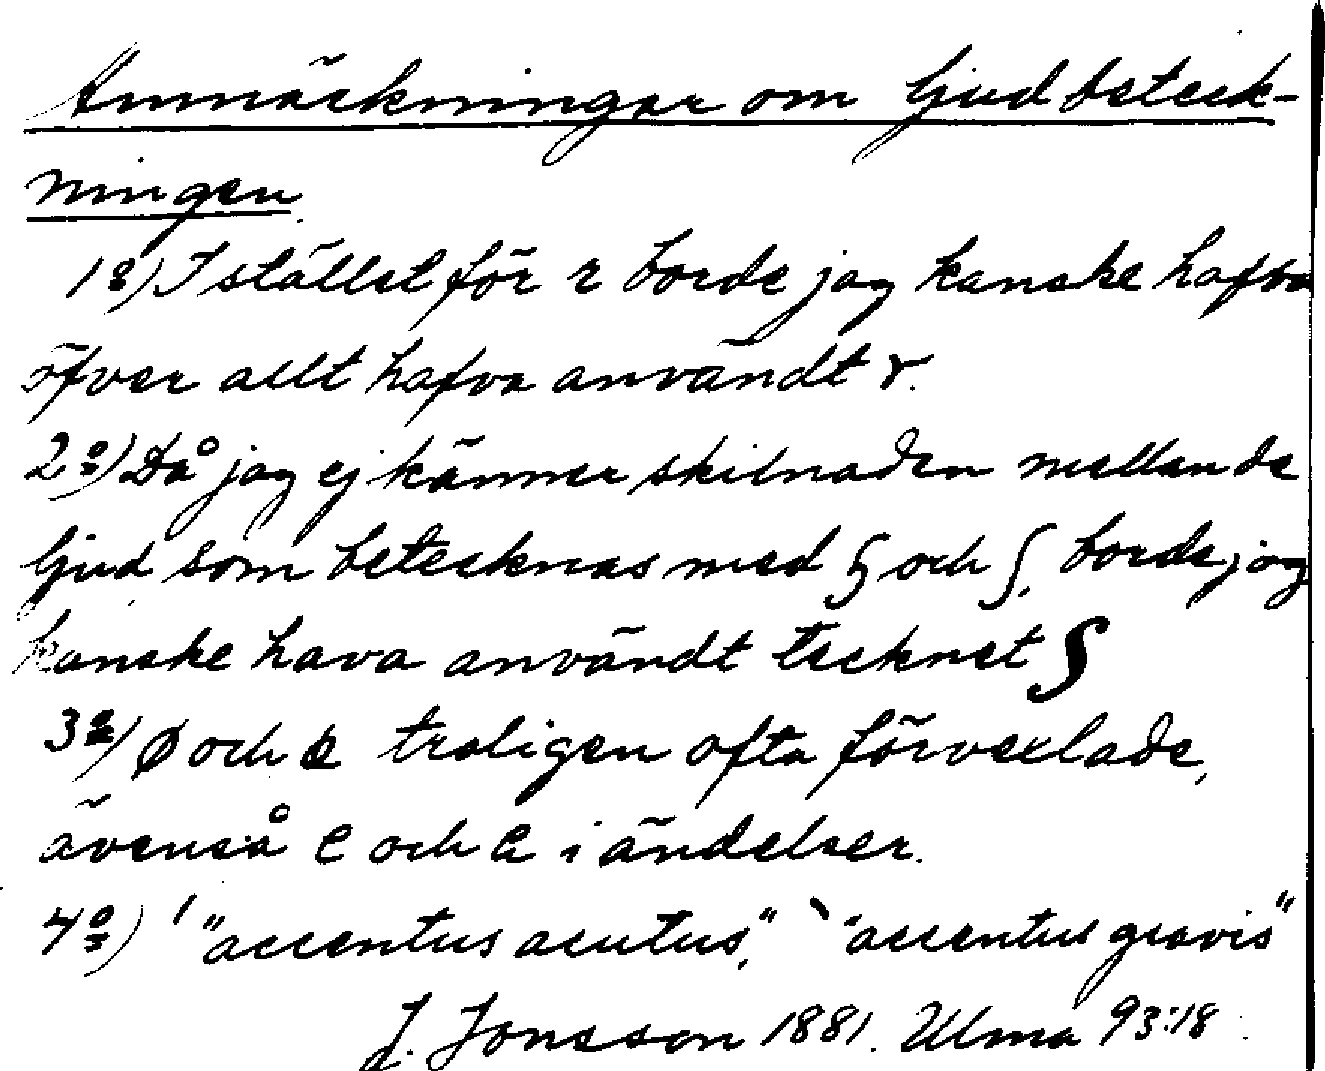 Anmärkningar om ljudbeteck-
ningen
1º) I stället för r borde jag kanske hafva
öfver allt hafva användt r.
2º) Då jag ej känner skilnaden mellan de
ljud som betecknas med ʃ och ʃ, borde jag
kanske hava användt tecknet ʃ
3º) ø och e troligen ofta förvexlade,
ävenså e och e i ändelser.
4º) ˊ "accentus acutus", ˋ "accentus gravis"
J. Jonsson 1881. Ulma 93:18